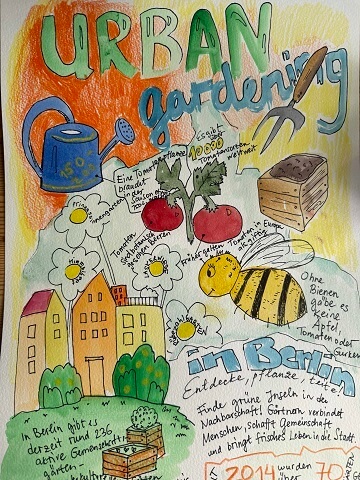 URBAN
gardening
Es gibt
über
10000
Tomatensorten
weltweit
Eine Tomatenpflanze
braucht
in der
Saison
Prinzessinnengarten
Tomaten
sind botanisch
gesehen Beeren
Früher galten Tomaten in Europa
als giftig
Ohne
Bienen
gäbe es
keine
Äpfel,
Tomaten oder
Gurken
in Berlin
Entdecke, pflanze, teile!
Finde grüne Inseln in der
Nachbarschaft! Gärtnern verbindet
Menschen, schafft Gemeinschaft
und bringt frisches Leben in die Stadt.
In Berlin gibt es
derzeit rund 236
aktive Gemeinschafts-
gärten-
2014 wurden
über 70